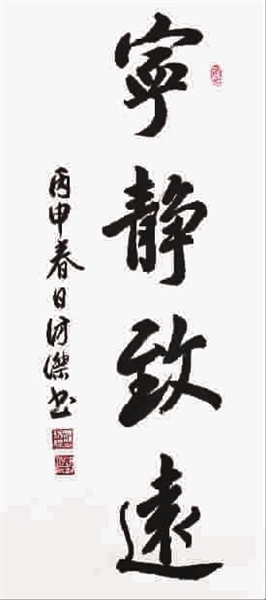 寧静致遠
丙申春日河傑书